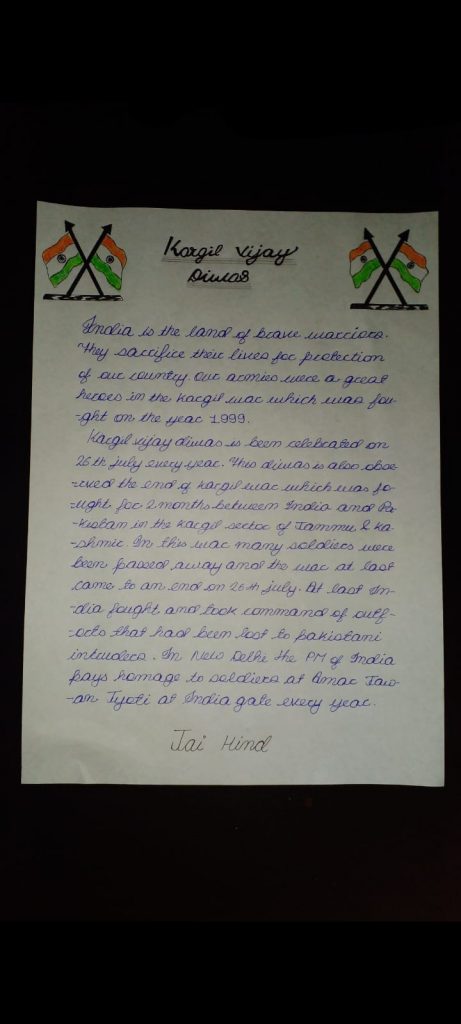 Kargil Vijay
Diwas
India is the land of brave warriors.
They sacrifice their lives for protection
of our country. Our armies were a great
heroes in the Kargil war which was fou-
-ght on the year 1999.
Kargil vijay diwas is been celebrated on
26th july every year. This diwas is also obse-
-rved the end of kargil war which was fo-
-ught for 2 months between India and Pa-
-kistan in the Kargil sector of Jammu & Ka-
-shmir. In this war many soldiers were
been passed away and the war at last
came to an end on 26th july. At last In-
-dia fought and took command of outp-
-osts that had been lost to pakistani
intruders. In New Delhi the PM of India
pays homage to soldiers at Amar Jaw-
-an Jyoti at India gate every year.
Jai Hind